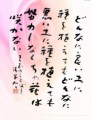 どんなに良い土に
種を植えてもどんなに
悪い土に種を植えても
努力しなくては花は
咲かない